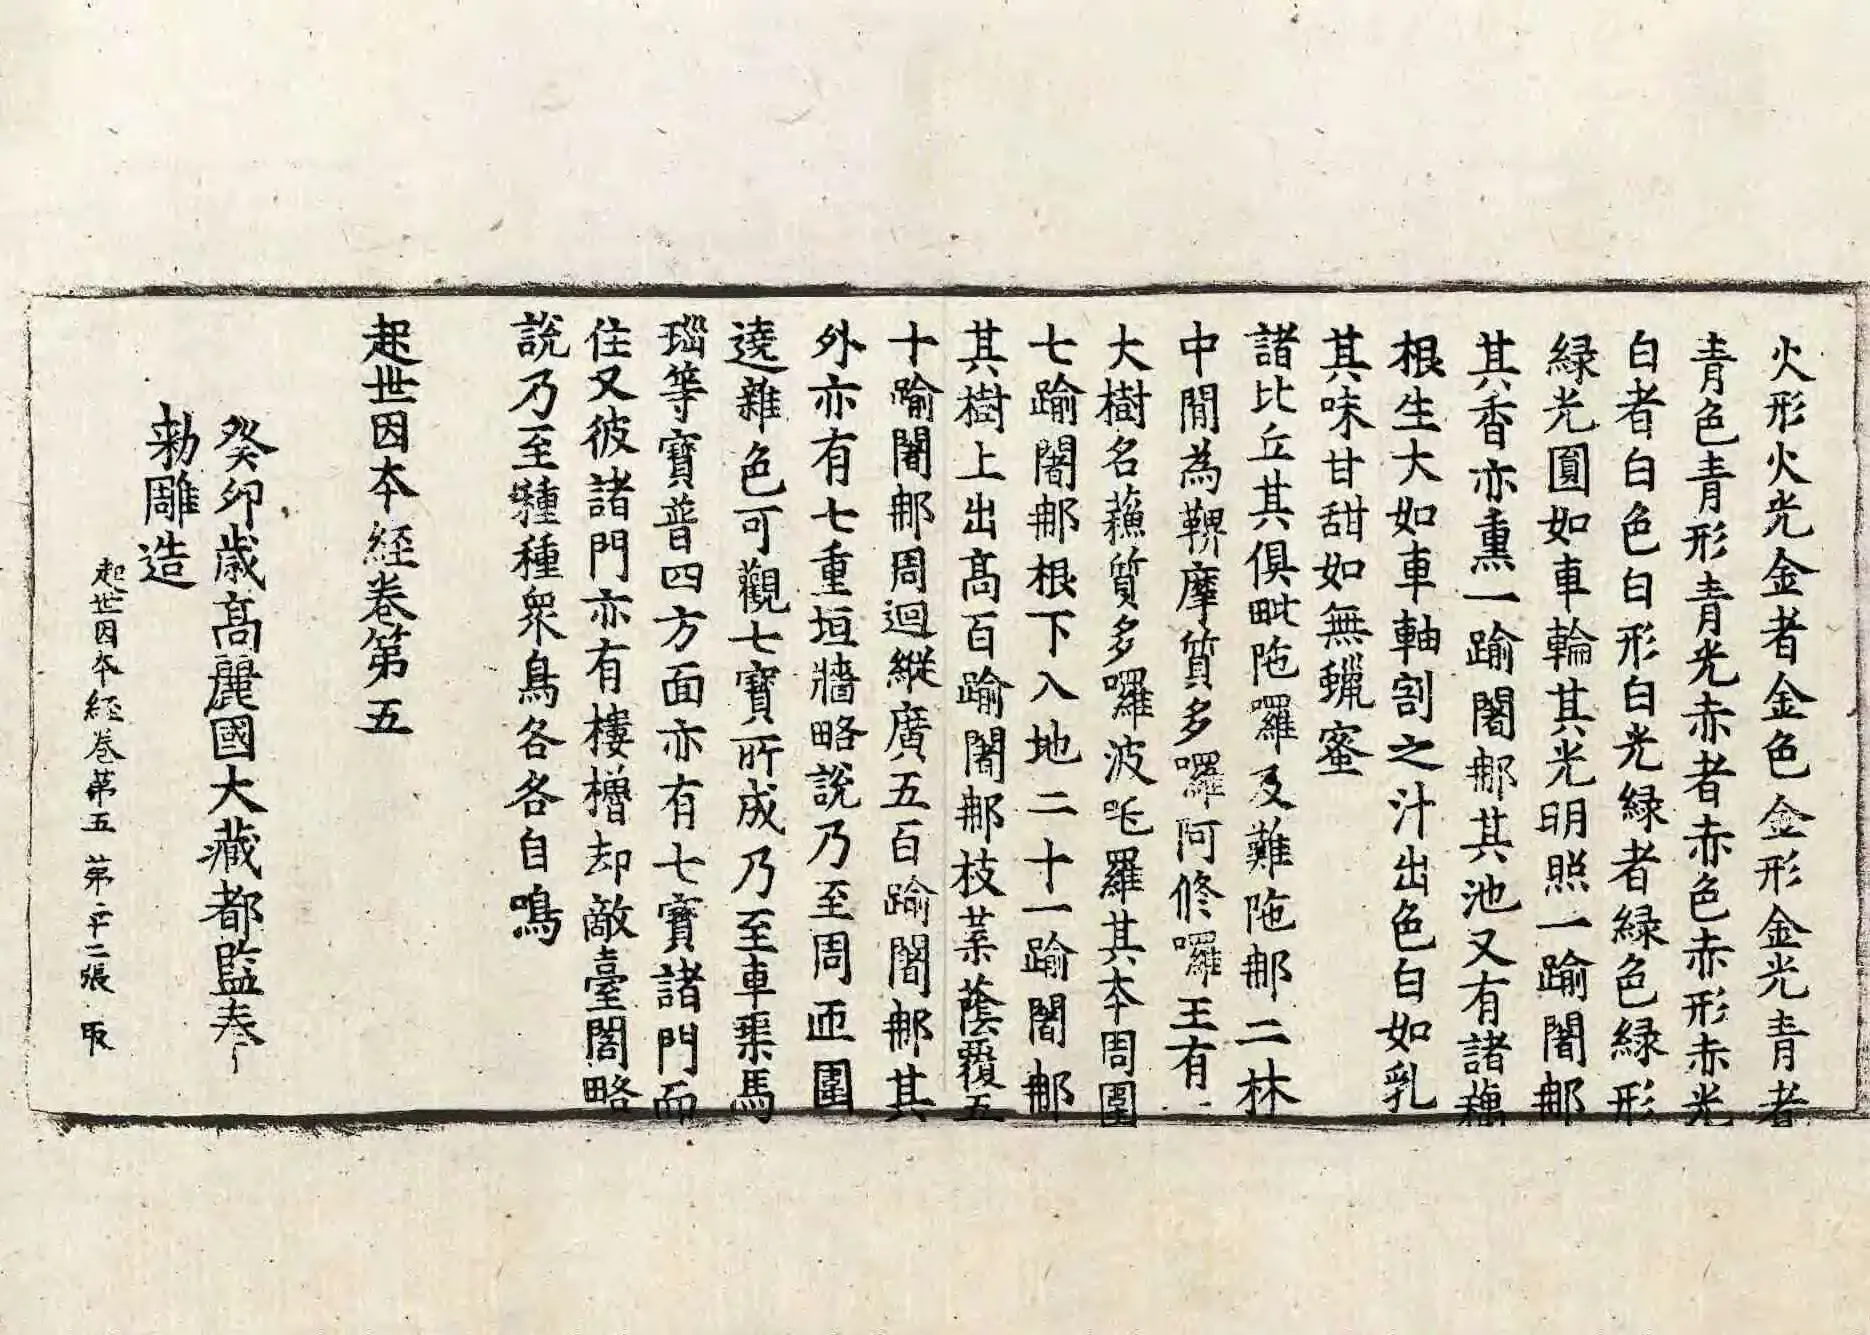 火形火光金者金色金形金光青者
青色青形青光赤者赤色赤形赤光
白者白色白形白光緑者緑色緑形
緑光圓如車輪其光明照一踰闍那
其香亦熏一踰闍那其池又有諸藕
根生大如車軸割之汁出色白如乳
其味甘甜如無蠟蜜
諸比丘其俱毗陁囉及難陁那二林
中閒為鞞摩質多囉阿修囉王有一
大樹名蘓質多囉波吒羅其本周圍
七踰闍那根下入地二十一踰闍那
其樹上出髙百踰闍那枝葉蔭覆五
十踰闍那周迴縱廣五百踰闍那其
外亦有七重垣牆略說乃至周匝圍
遶雜色可觀七寶所成乃至車𤦲馬
瑙等寶普四方面亦有七寶諸門而
住又彼諸門亦有樓櫓却敵臺閣略
說乃至種種衆鳥各各自鳴
起世因本經卷第五
癸卯歳髙麗國大藏都監奉
勅雕造
起世因本經卷第五 第二十二張